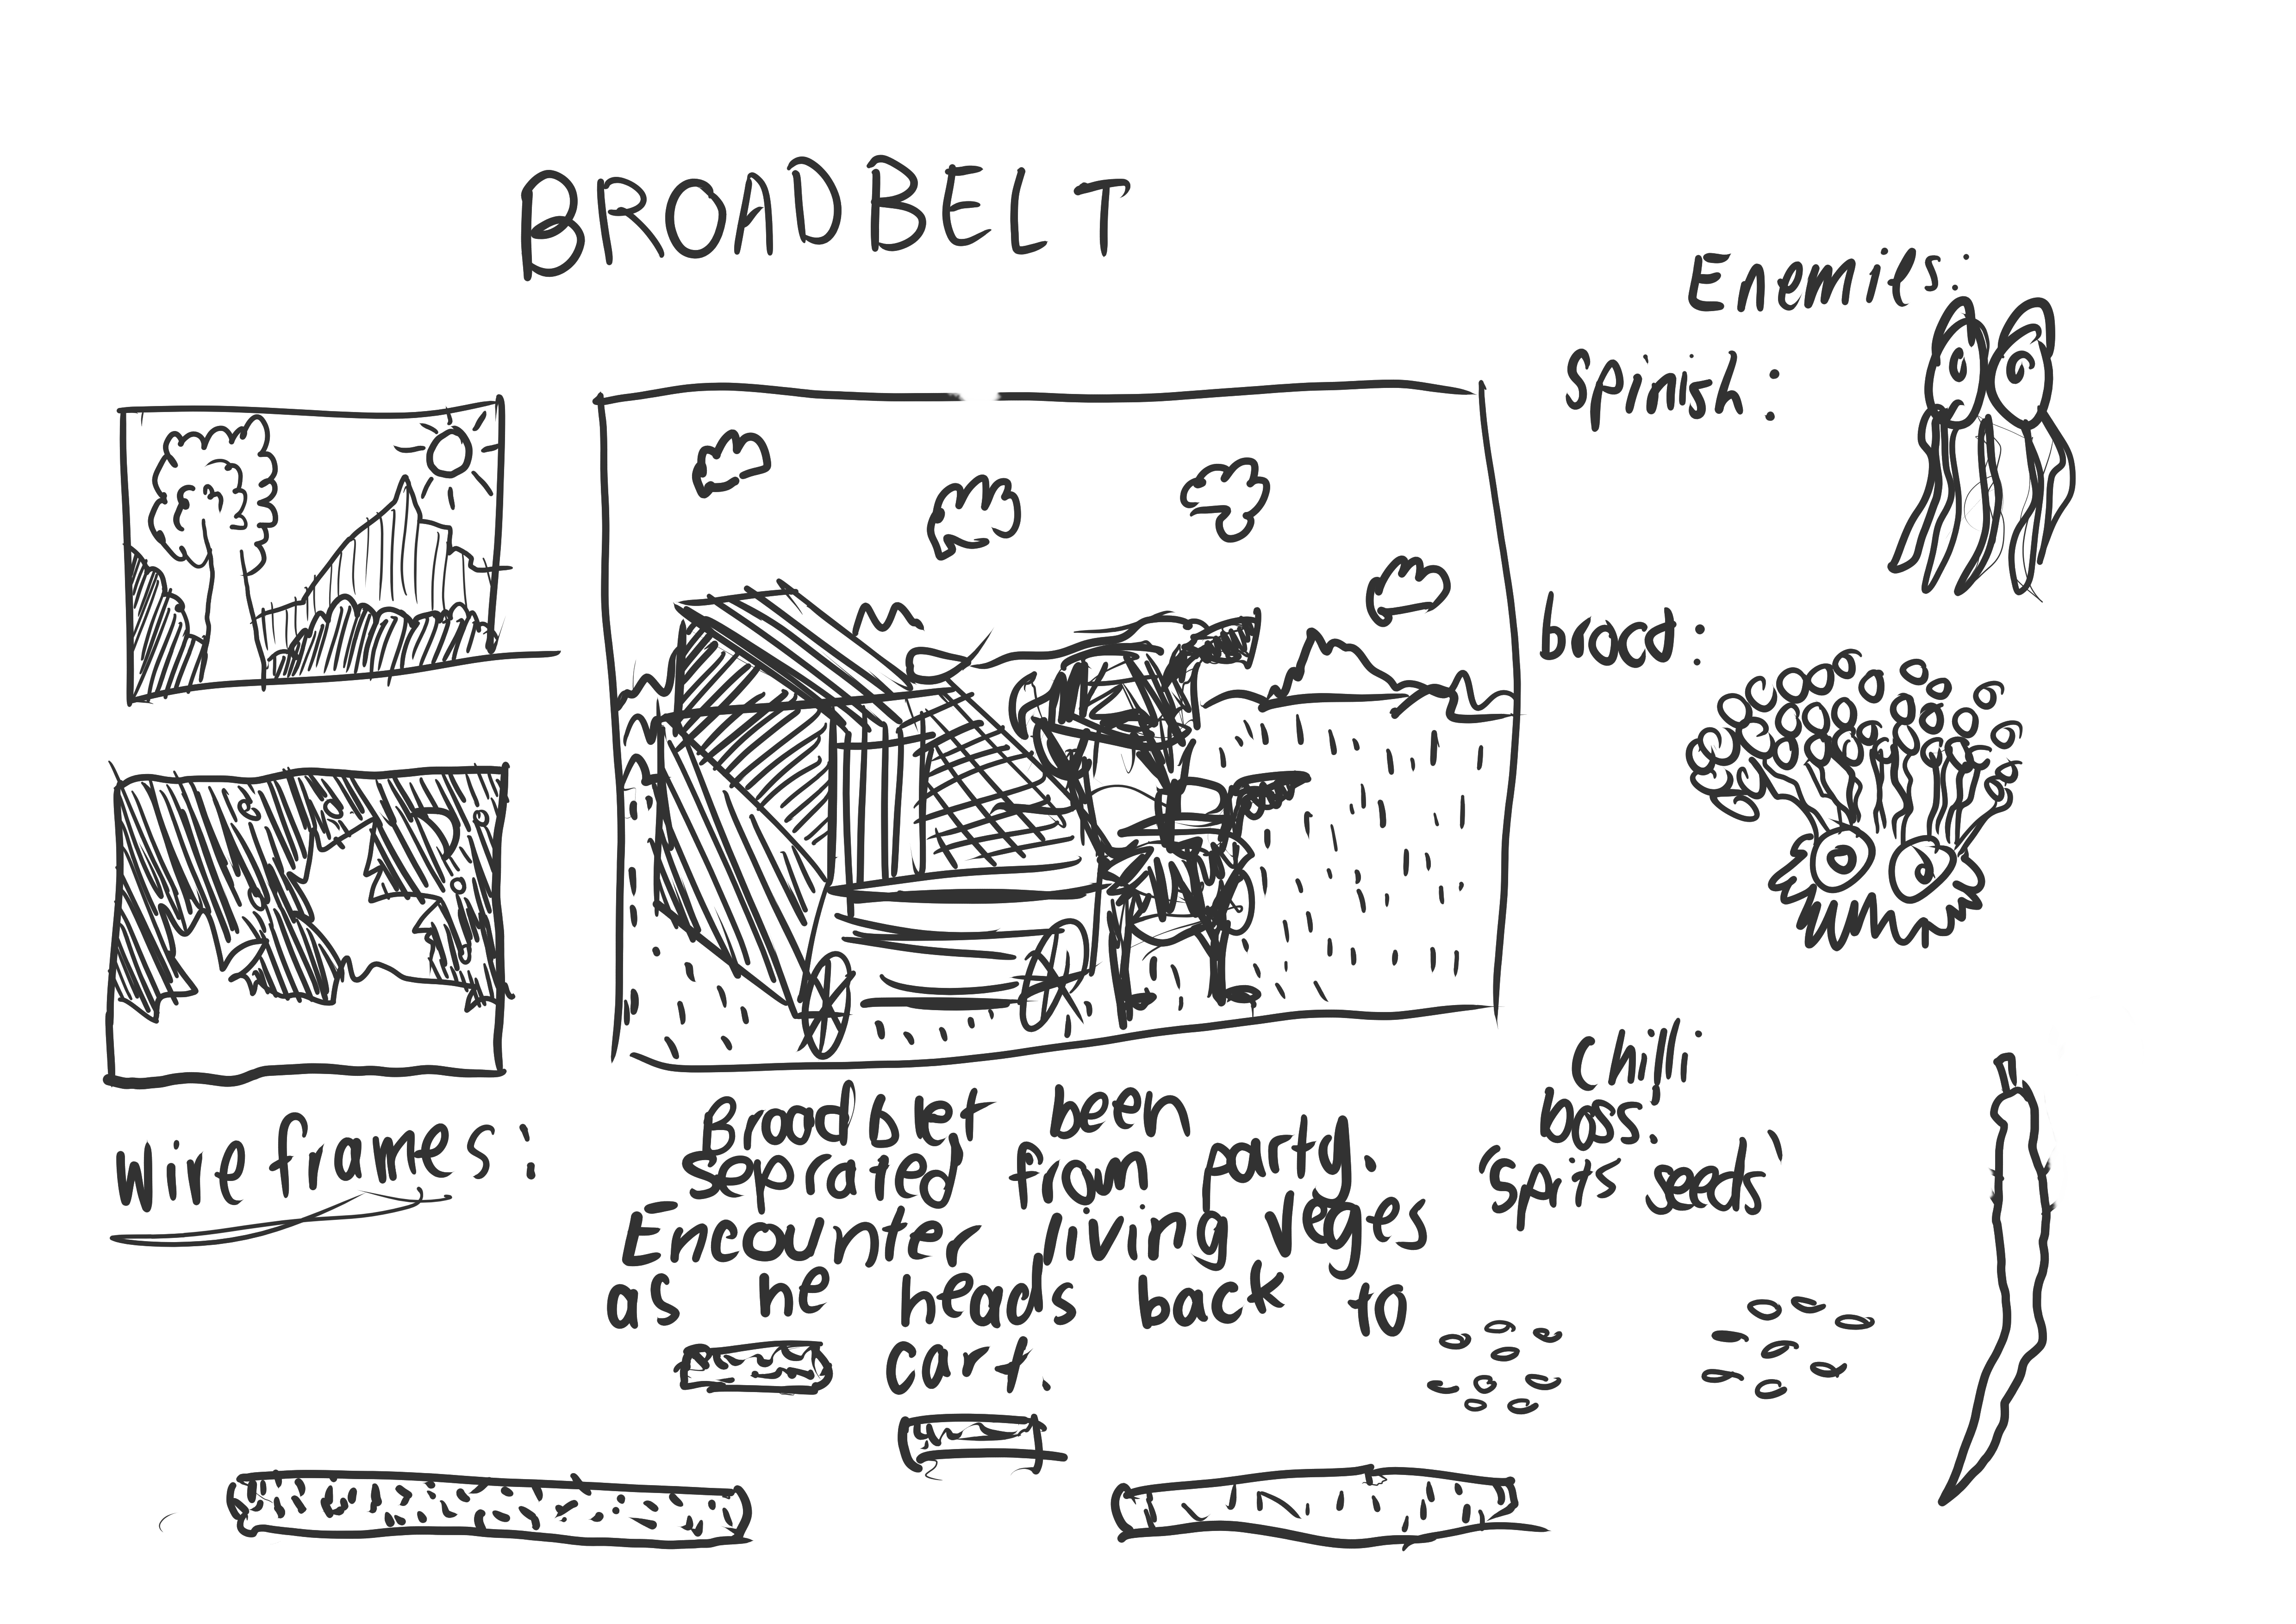 BROADBELT
Enemies:
Spinish:
broad:
Chilli
boss:
'Spits seeds'
Wire frames:
Broadblet been
Seprated from party.
Encounter living veges
as he heads back to
cart.